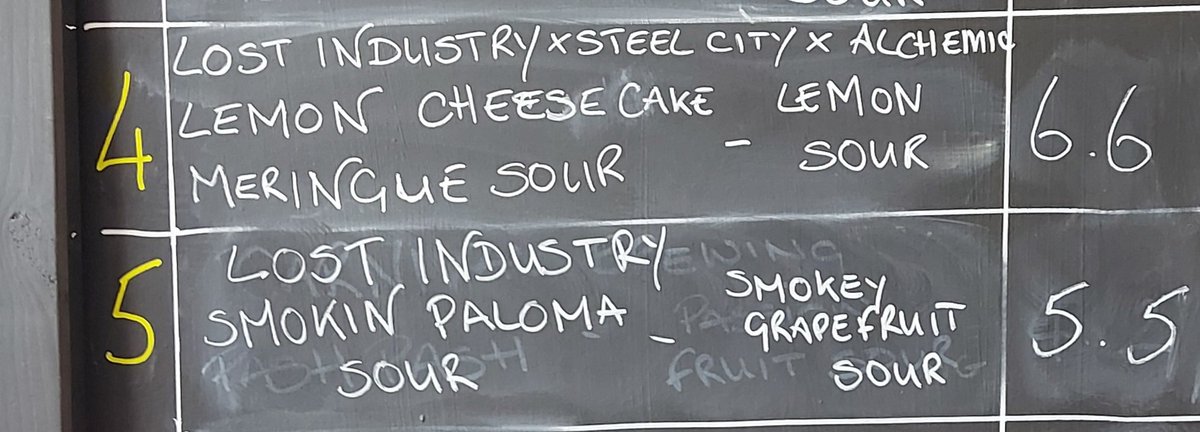 4
LOST INDUSTRY X STEEL CITY X ALCHEMIC
LEMON CHEESECAKE - LEMON
MERINGUE SOUR SOUR
6.6
5
LOST INDUSTRY
SMOKIN PALOMA - SMOKEY
GRAPEFRUIT
SOUR SOUR
5.5